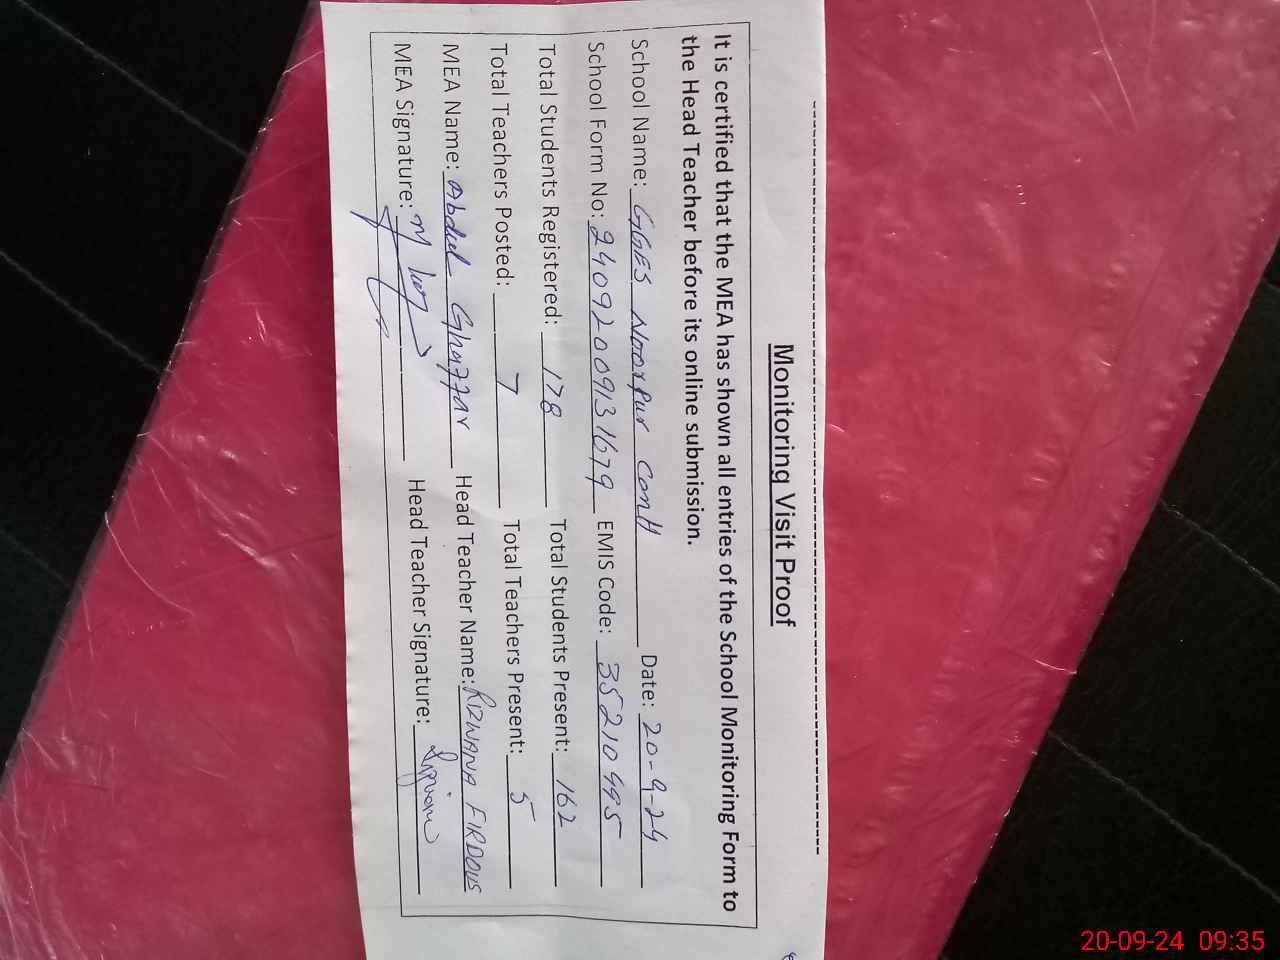 Monitoring Visit Proof
It is certified that the MEA has shown all entries of the School Monitoring Form to
the Head Teacher before its online submission.
School Name: GGES Noorpur Date: 20-9-24
School Form No: 2409200931679 EMIS Code: 35210495
Total Students Registered: 178 Total Students Present: 162
Total Teachers Posted: 7 Total Teachers Present: 5
MEA Name: Abdul Ghaffar Head Teacher Name: RIZWANA FIRDOUS
MEA Signature: Head Teacher Signature:
20-09-24 09:35